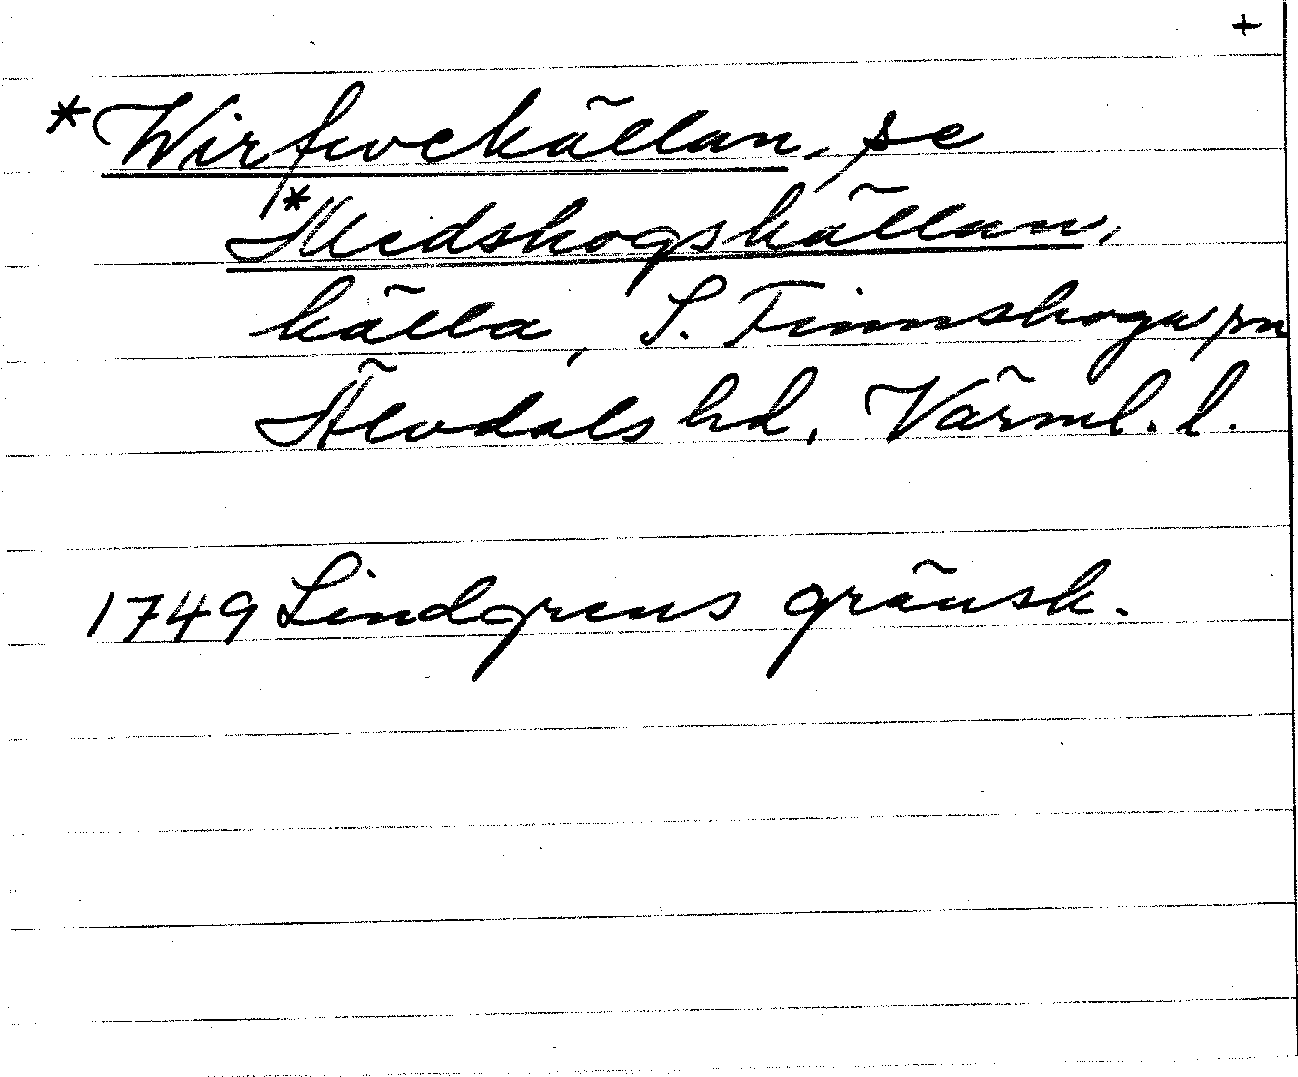 +
*Wirfwekällan, se
*Medskogskällan,
källa, S. Finnskoga sn
Älvdals hd, Värml. l.
1749 Lindgrens gränsk.